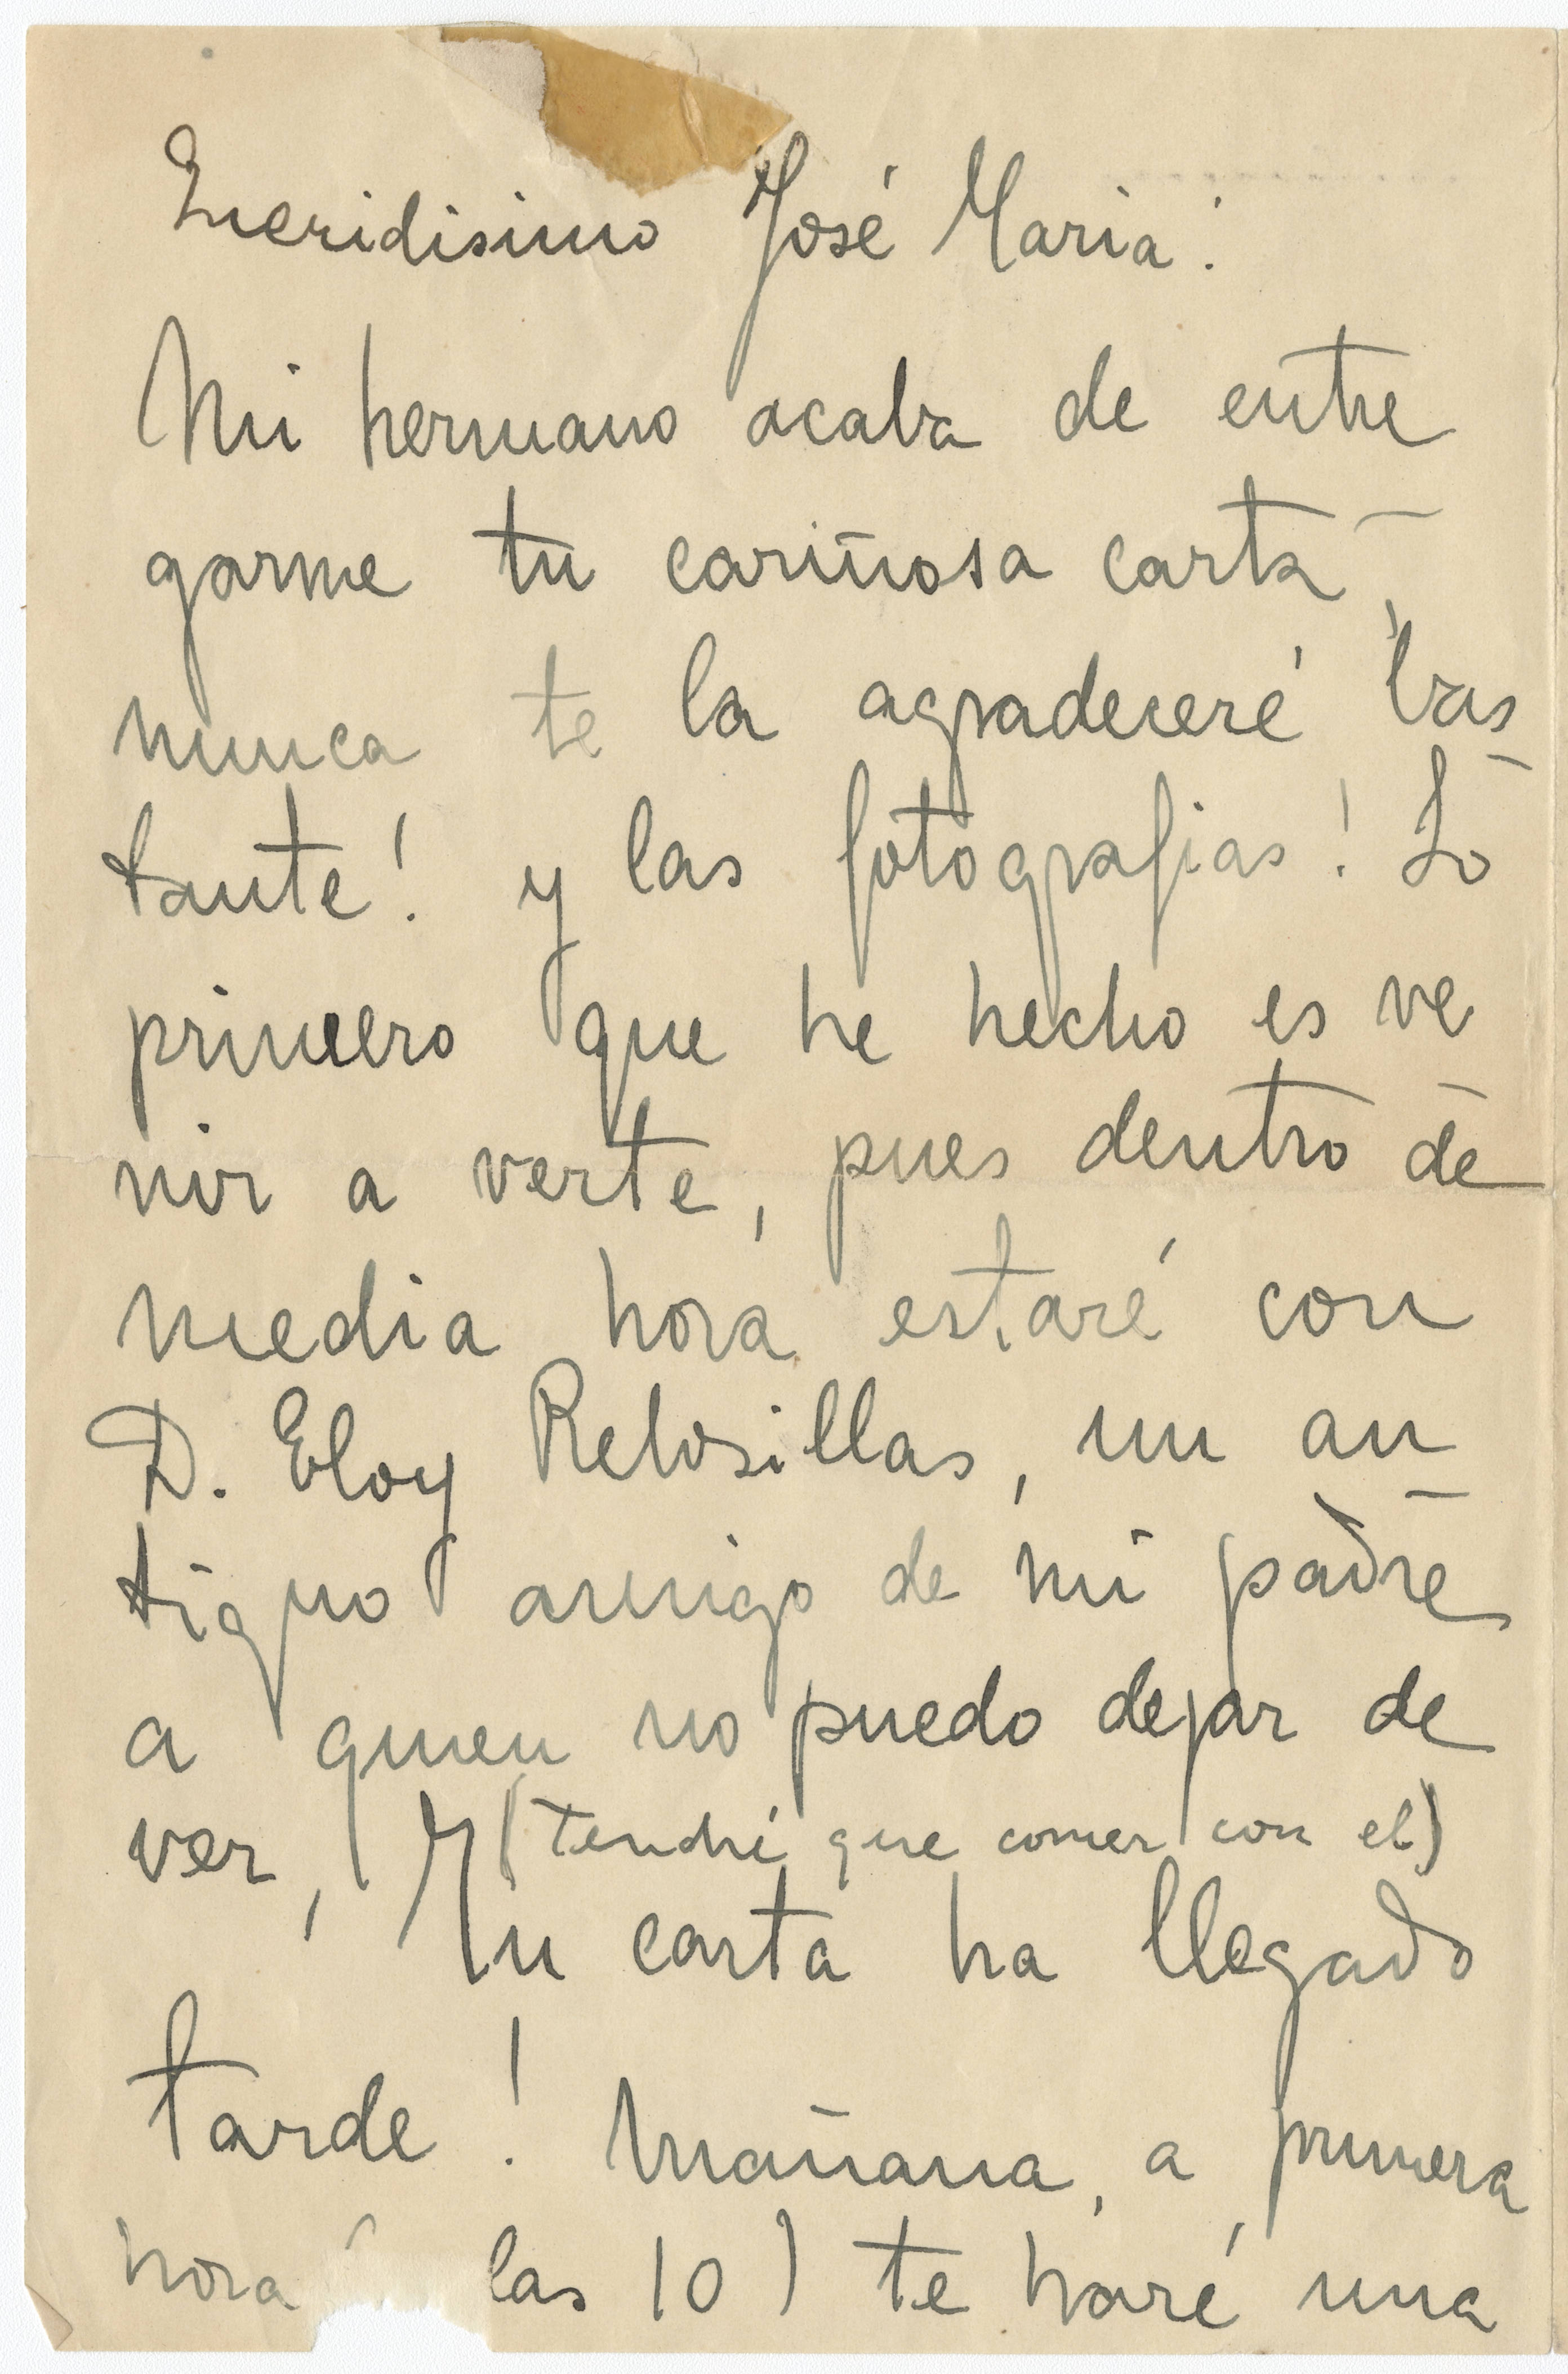 Queridisimo José Maria:
Mi hermano acaba de entre
garme tu cariñosa carta,
nunca te la agradeceré bas
tante! y las fotografias! Lo
primero que he hecho es ve
nir a verte, pues dentro de
media hora estaré con
D. Eloy Rebosillas, un an
tiguo amigo de mi padre
a quien no puedo dejar de
ver, (tendré que comer con el)
Tu carta ha llegado
tarde! Mañana, a primera
hora ( las 10) te haré una